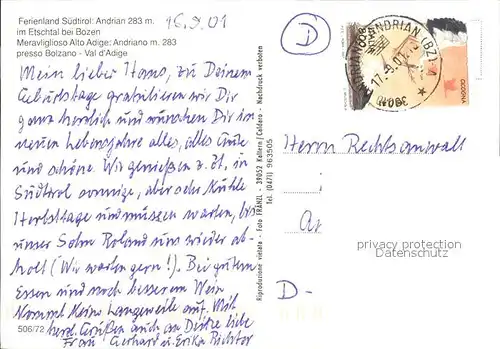 Ferienland Südtirol: Andrian 283 m.
im Etschtal bei Bozen
Meraviglioso Alto Adige: Andriano m. 283
presso Bolzano - Val d'Adige
15.9.01
Mein lieber Hans, zu Deinem
Geburtstage gratulieren wir Dir
ganz herzlich und wünschen Dir im
neuen Lebensjahre alles, alles Gute
und schöne. Wir genießen z. Zt. in
Südtirol sonnige, aber sehr kühle
Herbsttage und müssen warten, bis
unser Sohn Roland uns wieder ab-
holt (Wir warten gern!). Bei gutem
Essen und noch besserem Wein
kommt keine Langeweile auf. Mit
herzl. Grüßen auch an Deine liebe
Frau Gerhard u. Erika Richter
506/72
Riproduzione vietata - Foto FRANZL - 39052 Kaltern/Caldaro - Nachdruck verboten
Tel. (0471) 963505
D
ANDRIAN (BZ)
17.9.01
Herrn Rechtsanwalt
privacy protection
Datenschutz
D-